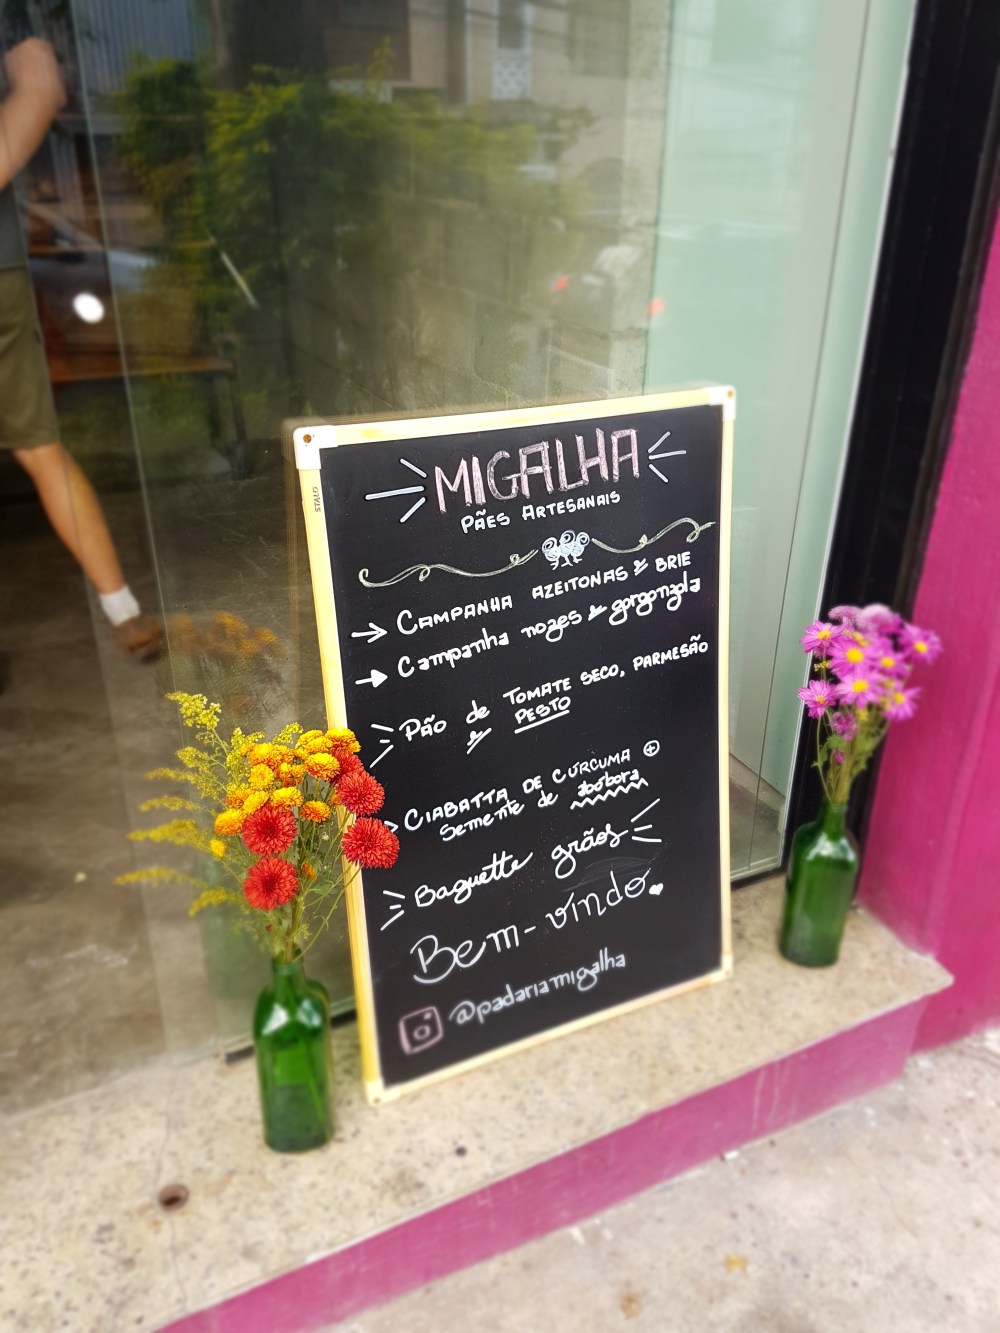 MIGALHA
PÃES ARTESANAIS
CAMPANHA AZEITONAS & BRIE
Campanha nozes & gorgonzola
PÃO de TOMATE SECO, PARMESÃO
& PESTO
CIABATTA DE CÚRCUMA +
Semente de abóbora
Baguette grãos
Bem-vindo
@padariamigalha
STALO